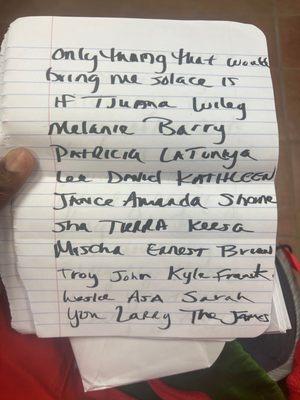 Only thing that would
bring me solace is
if Tijuana Wiley
Melanie Barry
Patricia LaTunya
Lee David KATHLEEN
Janice Amanda Shane
Sha TERRA Keesa
Mischa Ernest Brian
Troy John Kyle Frank.
Leslie Asa Sarah
You Larry The James